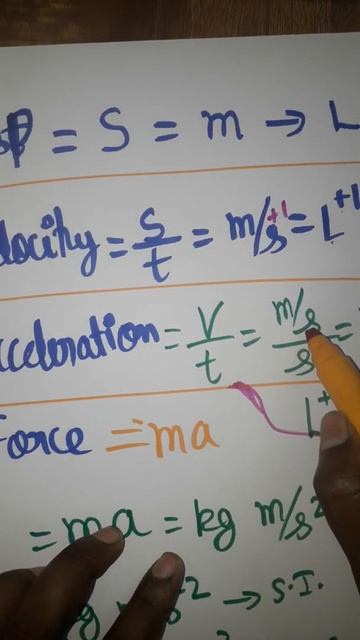 = S = m → L
locity = s/t = m/s+1 = L+1
cceleration = v/t = m/s/s =
L+
Force = ma
= ma = kg m/s2
-2 → S.I.